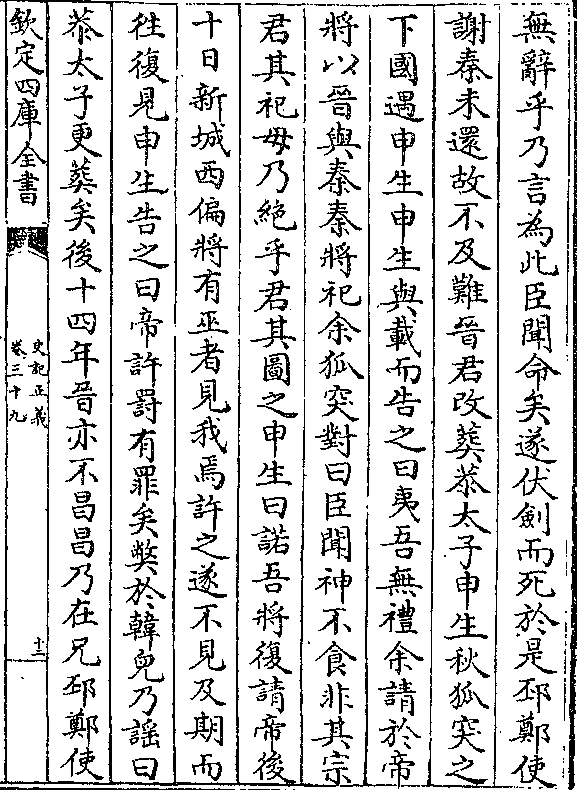 無辭乎乃言為此臣聞命矣遂伏劍而死於是邳鄭使
謝秦未還故不及難晉君改葬恭太子申生秋狐突之
下國遇申生申生與載而告之曰夷吾無禮余請於帝
將以晉與秦秦將祀余狐突對曰臣聞神不食非其宗
君其祀毋乃絶乎君其圖之申生曰諾吾將復請帝後
十日新城西偏將有巫者見我焉許之遂不見及期而
往復見申生告之曰帝許罰有罪矣獘於韓兒乃謡曰
恭太子更葬矣後十四年晉亦不昌昌乃在兄邳鄭使
欽定四庫全書
史記正義
卷三十九
十三